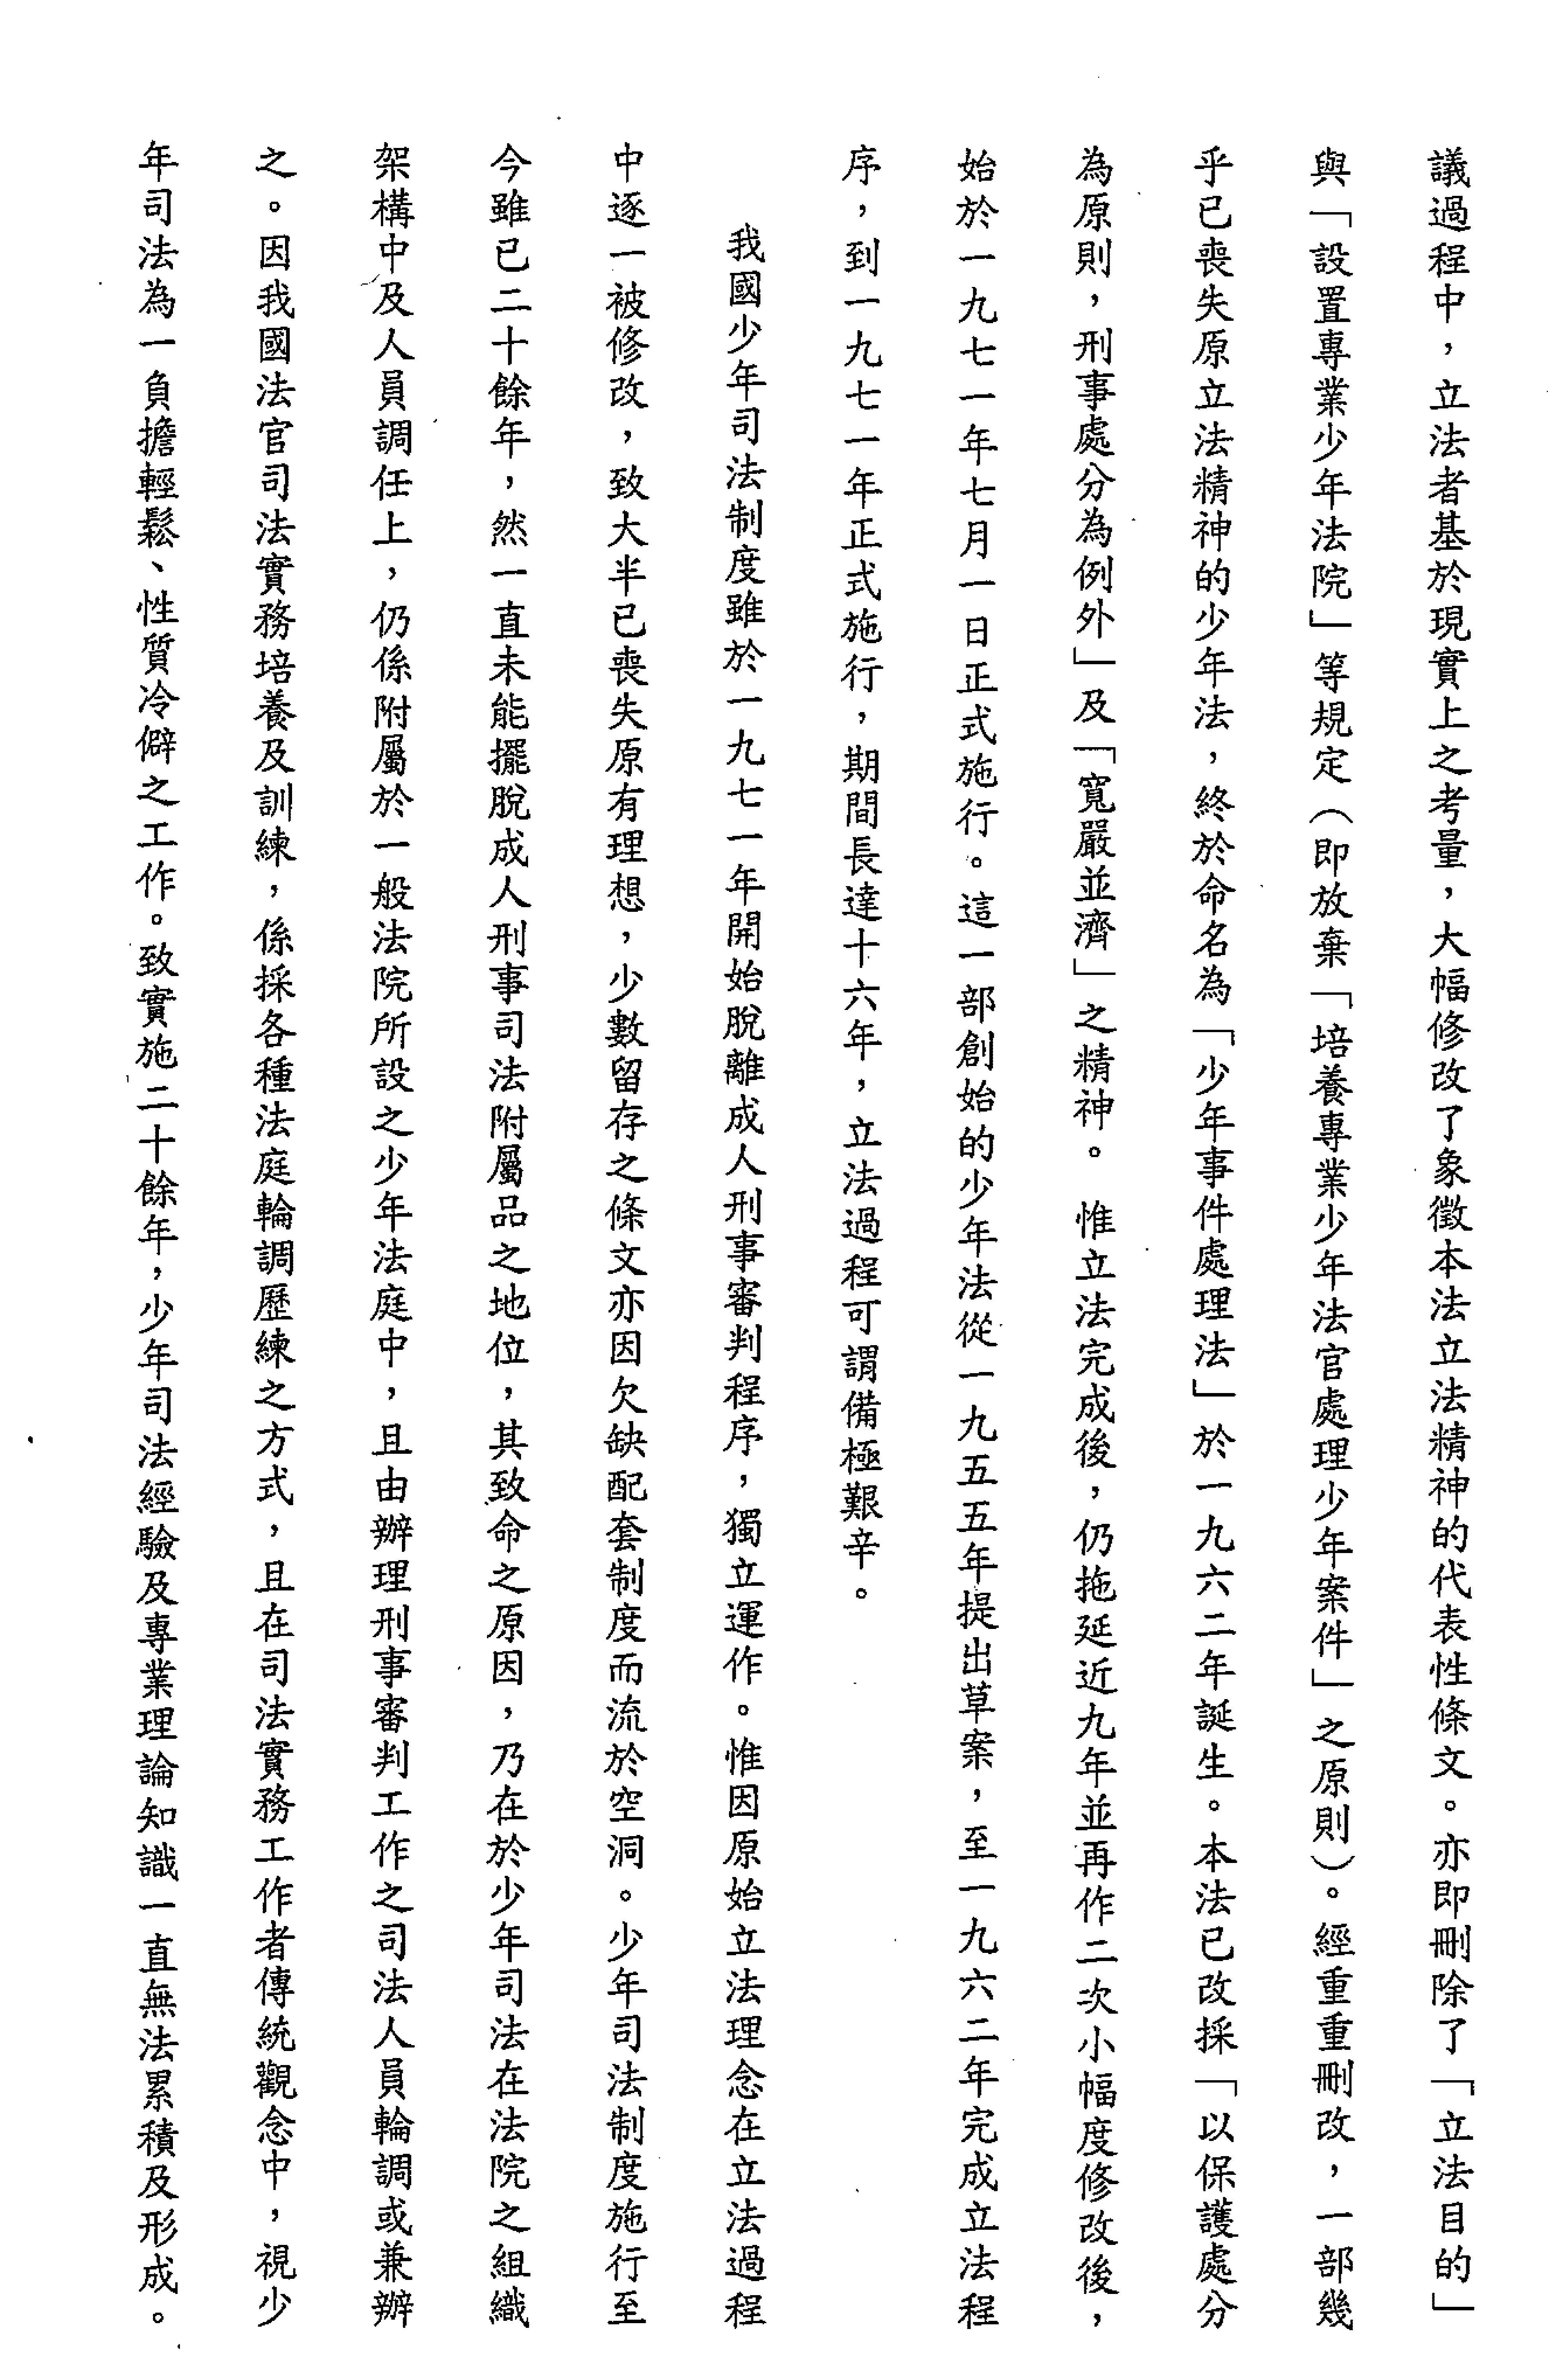 議過程中，立法者基於現實上之考量，大幅修改了象徵本法立法精神的代表性條文。亦即刪除了「立法目的」
與「設置專業少年法院」等規定（即放棄「培養專業少年法官處理少年案件」之原則）。經重重刪改，一部幾
乎已喪失原立法精神的少年法，終於命名為「少年事件處理法」於一九六二年誕生。本法已改採「以保護處分
為原則，刑事處分為例外」及「寬嚴並濟」之精神。惟立法完成後，仍拖延近九年並再作二次小幅度修改後，
始於一九七一年七月一日正式施行。這一部創始的少年法從一九五五年提出草案，至一九六二年完成立法程
序，到一九七一年正式施行，期間長達十六年，立法過程可謂備極艱辛。
我國少年司法制度雖於一九七一年開始脫離成人刑事審判程序，獨立運作。惟因原始立法理念在立法過程
中逐一被修改，致大半已喪失原有理想，少數留存之條文亦因欠缺配套制度而流於空洞。少年司法制度施行至
今雖已二十餘年，然一直未能擺脫成人刑事司法附屬品之地位，其致命之原因，乃在於少年司法在法院之組織
架構中及人員調任上，仍係附屬於一般法院所設之少年法庭中，且由辦理刑事審判工作之司法人員輪調或兼辦
之。因我國法官司法實務培養及訓練，係採各種法庭輪調歷練之方式，且在司法實務工作者傳統觀念中，視少
年司法為一負擔輕鬆、性質冷僻之工作。致實施二十餘年，少年司法經驗及專業理論知識一直無法累積及形成。